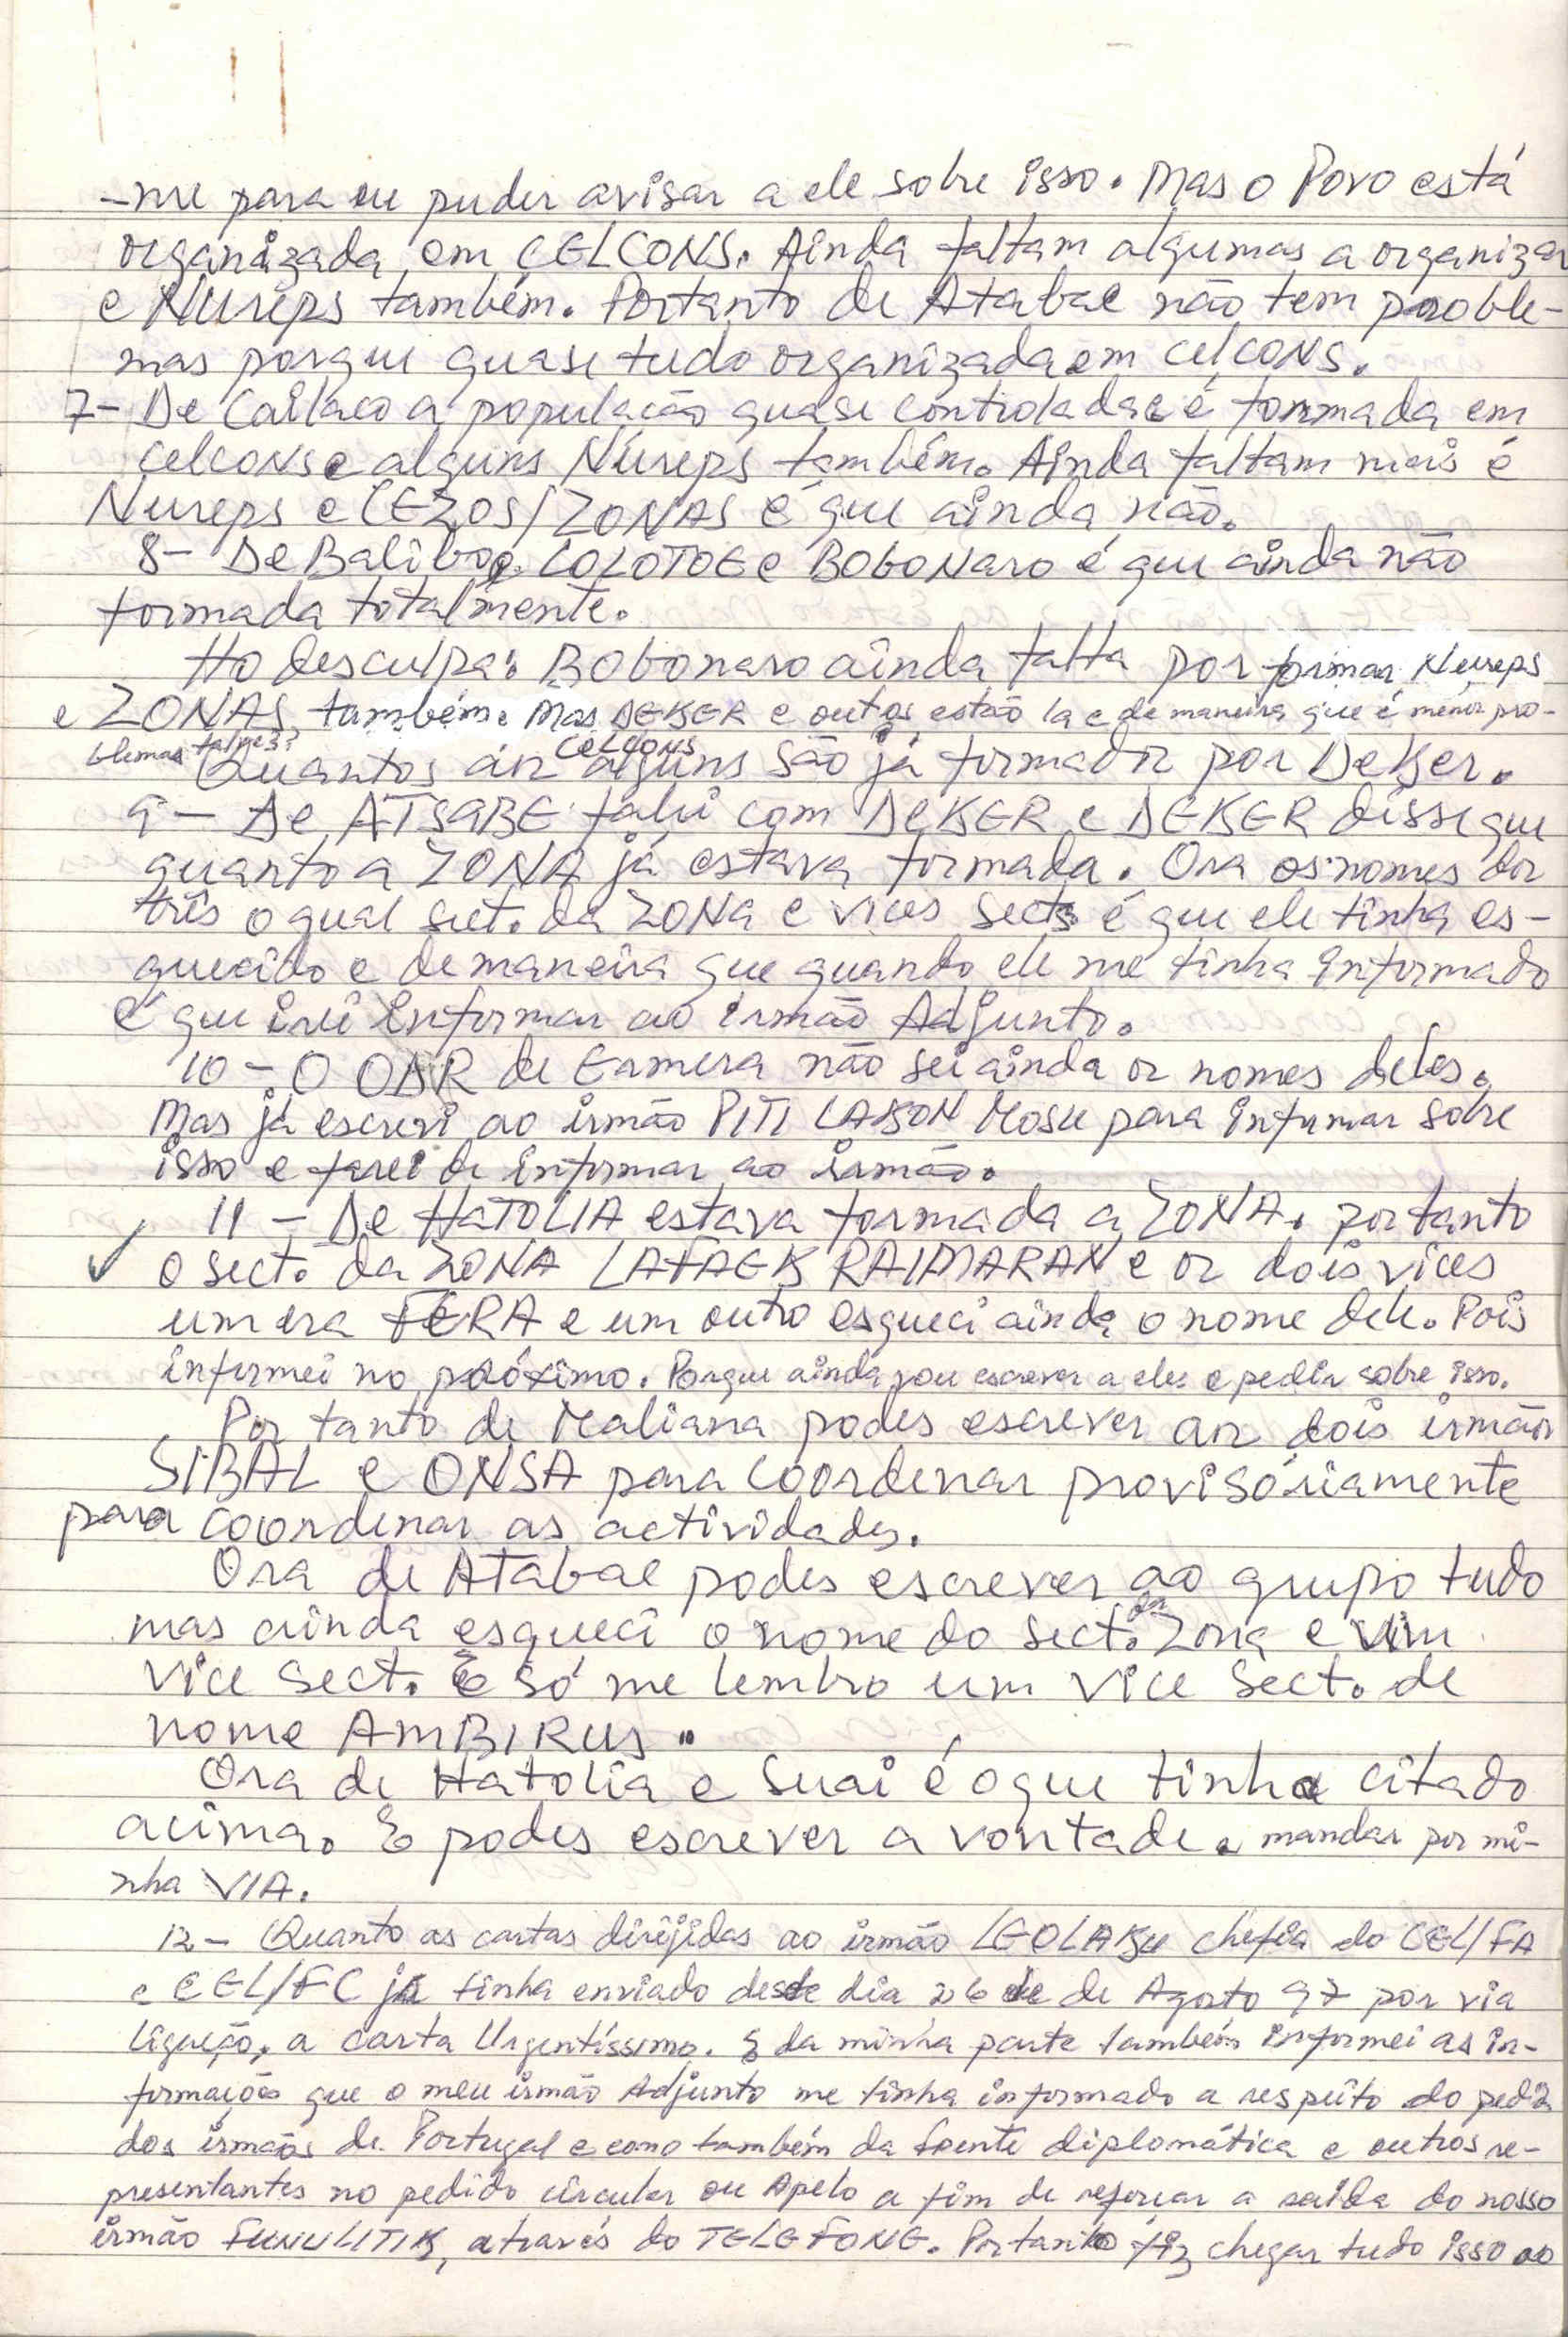 -me para eu puder avisar a ele sobre isso. Mas o Povo está
organizada em CELCONS. Ainda faltam algumas a organizar
e Nureps também. Portanto de Atabae não tem proble-
mas porque quase tudo organizada em CELCONS.
7- De Cailaco a população quase controlada e é formada em
Celcons e alguns Núreps também. Ainda faltam mais é
Nureps e CEZOS/ZONAS é que ainda não.
8- De Balibo e LOLOTOE e BOBONARO é que ainda não
formada totalmente.
Ho desculpa: Bobonaro ainda falta por formar Nureps
e ZONAS também. Mas DEKER e outos estão la e de maneira que é menor pro-
blemas talves?
Quantos aos CELCONS alguns são já formados por Deker.
9- De ATSABE falei com DEKER e DEKER disse que
quanto a ZONA já estava formada. Ora os nomes dos
três o qual sect. da ZONA e vices sects é que ele tinha es-
quecido e de maneira que quando ele me tinha informado
é que irei informar ao irmão Adjunto.
10- O ODR de Eamera não sei ainda os nomes deles.
Mas já escrevi ao irmão PITI LAKON MOSU para informar sobre
isso e farei de informar ao irmão.
11- De HATOLIA estava formada a ZONA. portanto
o sect. da ZONA LAFAEK RAIMARAN e os dois vices
um era FERA e um outro esqueci ainda o nome dele. Pois
informei no próximo. Porque ainda vou escrever a eles e pedir sobre isso.
Por tanto de Maliana podes escrever aos dois irmãos
SIBAL e ONSA para coordenar provisóriamente
para coordenar as actividades.
Ora de Atabae podes escrever ao grupo tudo
mas ainda esqueci o nome do sect. da Zona e um
vice sect. E só me lembro um vice sect. de
nome AMBIRUS.
Ora de Hatolia e Suai é o que tinha citado
acima. E podes escrever a vontade e mandar por mi-
nha VIA.
12- Quanto as cartas dirijidas ao irmão LEOLAKU chefia do CEL/FA
e CEL/FC já tinha enviado desde dia 26 de de Agosto 97 por via
ligação, a carta Urgentíssimo. E da minha parte também informei as in-
formações que o meu irmão Adjunto me tinha informado a respeito do pedido
dos irmãos de Portugal e como também da frente diplomática e outros re-
presentantes no pedido circular ou Apelo a fim de reforçar a saída do nosso
irmão FUNU LITIK, através do TELEFONE. Portanto fiz chegar tudo isso ao